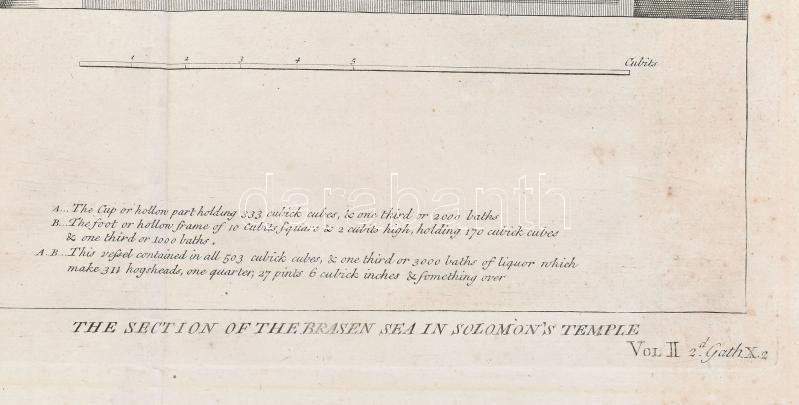 1 2 3 4 5 Cubits
A... The Cup or hollow part holding 333 cubick cubes, & one third or 2000 baths
B... The foot or hollow frame of 10 cubits square & 2 cubits high, holding 170 cubick cubes
& one third or 1000 baths.
A.B... This veſsel contained in all 503 cubick cubes, & one third or 3000 baths of liquor which
make 311 hogsheads, one quarter, 27 pints 6 cubick inches & ſomething over
darabanth
THE SECTION OF THE BRASEN SEA IN SOLOMON'S TEMPLE
VOL II 2.d Gath X.2